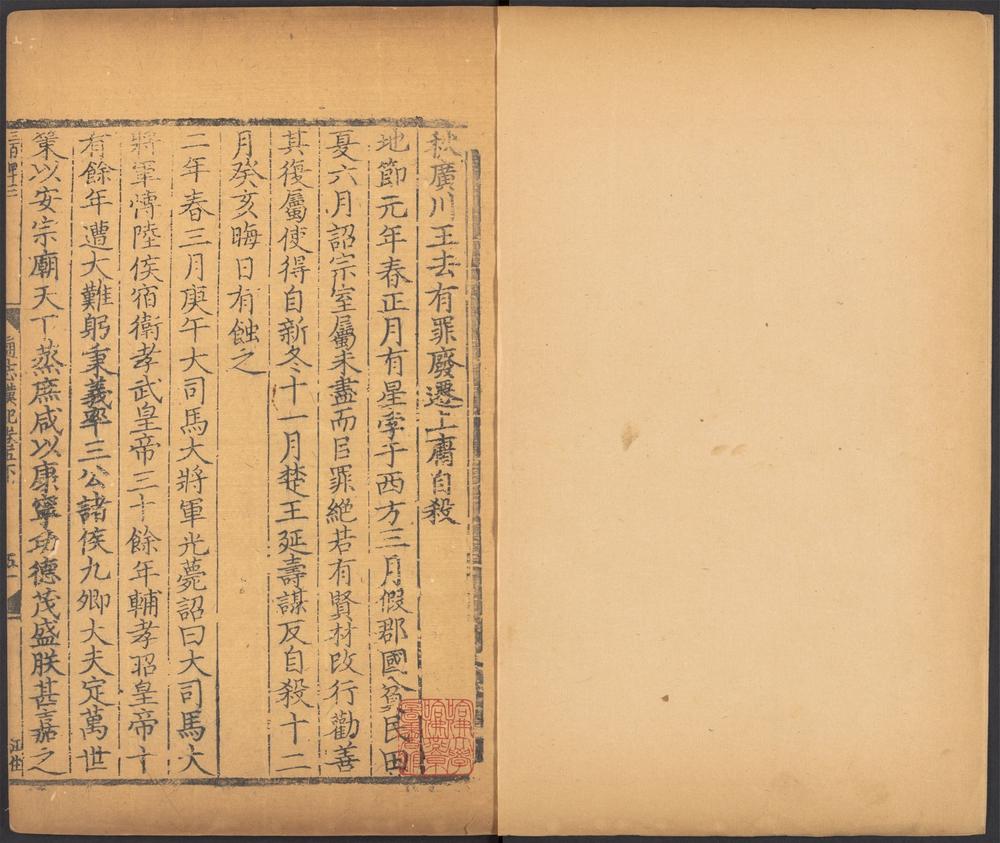 秋廣川王去有罪廢遷上庸自殺
地節元年春正月有星孛于西方三月假郡國貧民田
夏六月詔宗室屬未盡而㠯罪絶若有賢材改行勸善
其復屬使得自新冬十一月楚王延壽謀反自殺十二
月癸亥晦日有蝕之
二年春三月庚午大司馬大將軍光薨詔曰大司馬大
將軍愽陸侯宿衛孝武皇帝三十餘年輔孝昭皇帝十
有餘年遭大難躬秉義率三公諸侯九卿大夫定萬世
策以安宗廟天下蒸庶咸以康寧功德茂盛朕甚嘉之
通志漢紀卷五下
五一